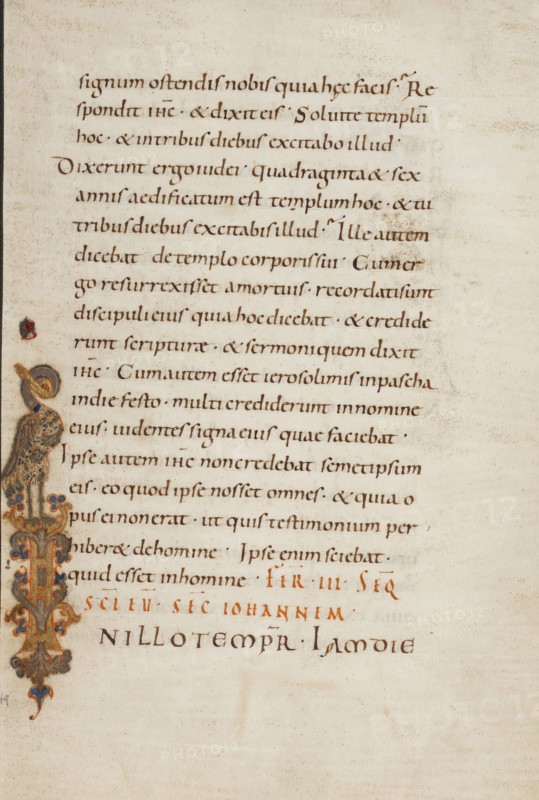 signum ostendis nobis quia hęc facis· Re
spondit ih̅c · & dixit eis · Soluite templū
hoc · & intribus diebus excitabo illud ·
Dixerunt ergo iudei · quadraginta & sex
annis aedificatum est templum hoc · & tu
tribus diebus excitabis illud · Ille autem
dicebat de templo corporis sui · Cum er
go resurrexisset amortuis · recordati sunt
discipuli eius quia hoc dicebat · & credide
runt scripturæ · & sermoni quem dixit
ih̅c · Cum autem esset ierosolimis in pascha
in die festo · multi crediderunt in nomine
eius · uidentes signa eius quae faciebat ·
Ipse autem ih̅c non credebat semetipsum
eis · eo quod ipse nosset omnes · & quia o
pus ei non erat · ut quis testimonium per
hiber& de homine · Ipse enim sciebat ·
quid esset in homine · FER · III · SEQ̅
SC̅I EU̅ · SEC̅ IOHANNEM ·
NILLO TEMP̅R · IAM DIE
PHOTO12